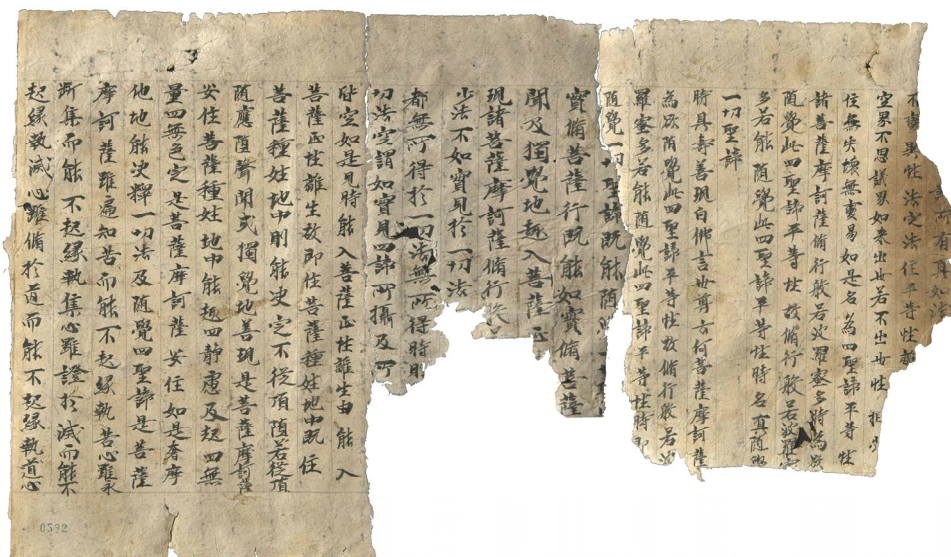 異性法定法住平等性離
空界不思議界如來出世若不出世性相常
住無失壞無變易如是名為四聖諦平等性
諸菩薩摩訶薩脩行般若波羅蜜多時為欲
隨覺此四聖諦平等性故脩行般若波羅蜜
多若能隨覺此四聖諦平等性時名真隨覺
一切聖諦
時具壽善現白佛言世尊云何菩薩摩訶薩
為欲隨覺此四聖諦平等性故脩行般若波
羅蜜多若能隨覺此四聖諦平等性時即
隨覺一切聖諦既能隨
實脩菩薩行既能如實脩菩薩
聞及獨覺地趣入菩薩正
現諸菩薩摩訶薩脩行般
少法不如實見於一切法
都無所得於一切法無所得時則
切法空謂如實見四諦所攝及所
皆空如是見時能入菩薩正性離生由能入
菩薩正性離生故即住菩薩種姓地中既住
菩薩種姓地中則能決定不從頂墮若從頂
墮應墮聲聞或獨覺地善現是菩薩摩訶薩
安住菩薩種姓地中能四靜慮及起四無
量四無色定是菩薩摩訶薩安住如是奢摩
他地能決擇一切法及隨覺四聖諦是菩薩
摩訶薩雖遍知苦而能不起緣執苦心雖永
斷集而能不起緣執集心雖證於滅而能不
起緣執滅心雖脩於道而能不起緣執道心
0592